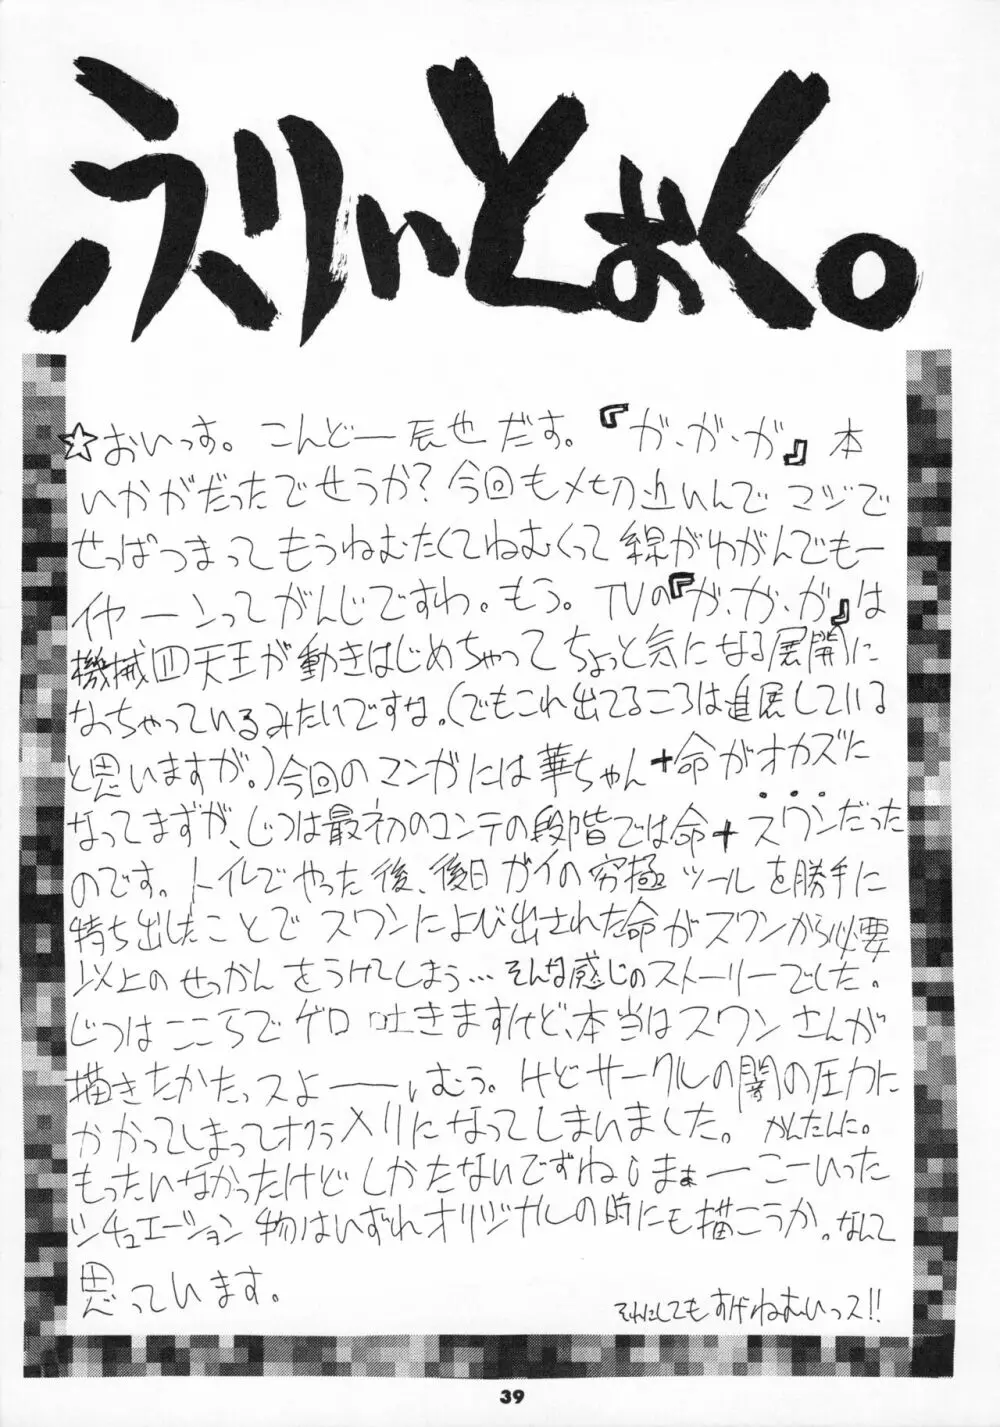 えりぃとぉく。
☆おいっす。こんどー辰也だす。『ガ・ガ・ガ』本
いかがだったでせうか？今回もメ切近いんでマジで
せっぱつまってもうねむたくてねむくって線がわがんでもー
イヤーンってがんじですわ。もう。TVの『ガ・ガ・ガ』は
機械四天王が動きはじめちゃってちょっと気になる展開に
なっちゃっているみたいですな。(でもこれ出てるころは進展している
と思いますが。)今回のマンガには華ちゃん+命がオカズに
なってまずが、じつは最初のコンテの段階では命+スワンだった
のです。トイレでやった後、後日ガイの究極ツールを勝手に
持ち出したことでスワンによび出された命がスワンから必要
以上のせっかんをうけてしまう…そんな感じのストーリーでした。
じつはこころでゲロ吐きますけど、本当はスワンさんが
描きたかたっスよーーーぃむぅ。けどサークルの闇の圧力に
かかってしまってオクラ入りになってしまいました。かんたんに。
もったいなかったけどしかたないですねぃまぁーこーいった
シチュエーション物はいずれオリジナルの時にも描こうか。なんて
思っています。
それにしてもすげねむいっス!!
39